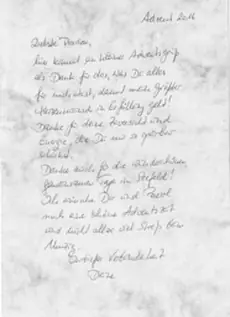 Advent 2016
Liebste
hier kommt ein kleiner Adventsgruß
als Dank für das, was Du alles
für mich tust, damit mein größter
Herzenswunsch in Erfüllung geht!
Danke für deine Zuversicht und
Energie, die Du mir so
Danke auch für die wunderschönen
gemeinsamen Tage in Seefeld!
Ich wünsche Dir und
noch eine schöne Adventszeit
und nicht allzu viel Stress bzw
In Verbundenheit